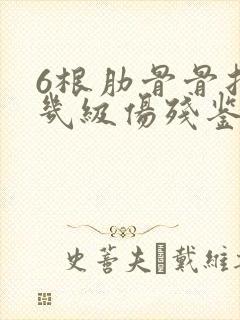 6根肋骨骨折
幾級傷殘鉴
史蒈夫 戴維